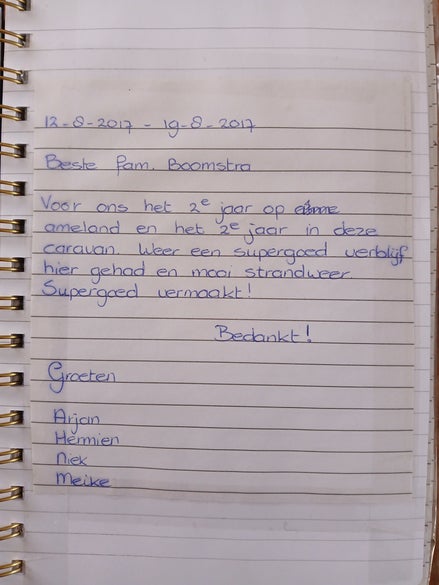 12-8-2017 - 19-8-2017
Beste fam. Boomstra
Voor ons het 2e jaar op
ameland en het 2e jaar in deze
caravan. Weer een supergoed verblijf
hier gehad en mooi strandweer.
Supergoed vermaakt!
Bedankt!
Groeten
Arjan
Hermien
Niek
Meike